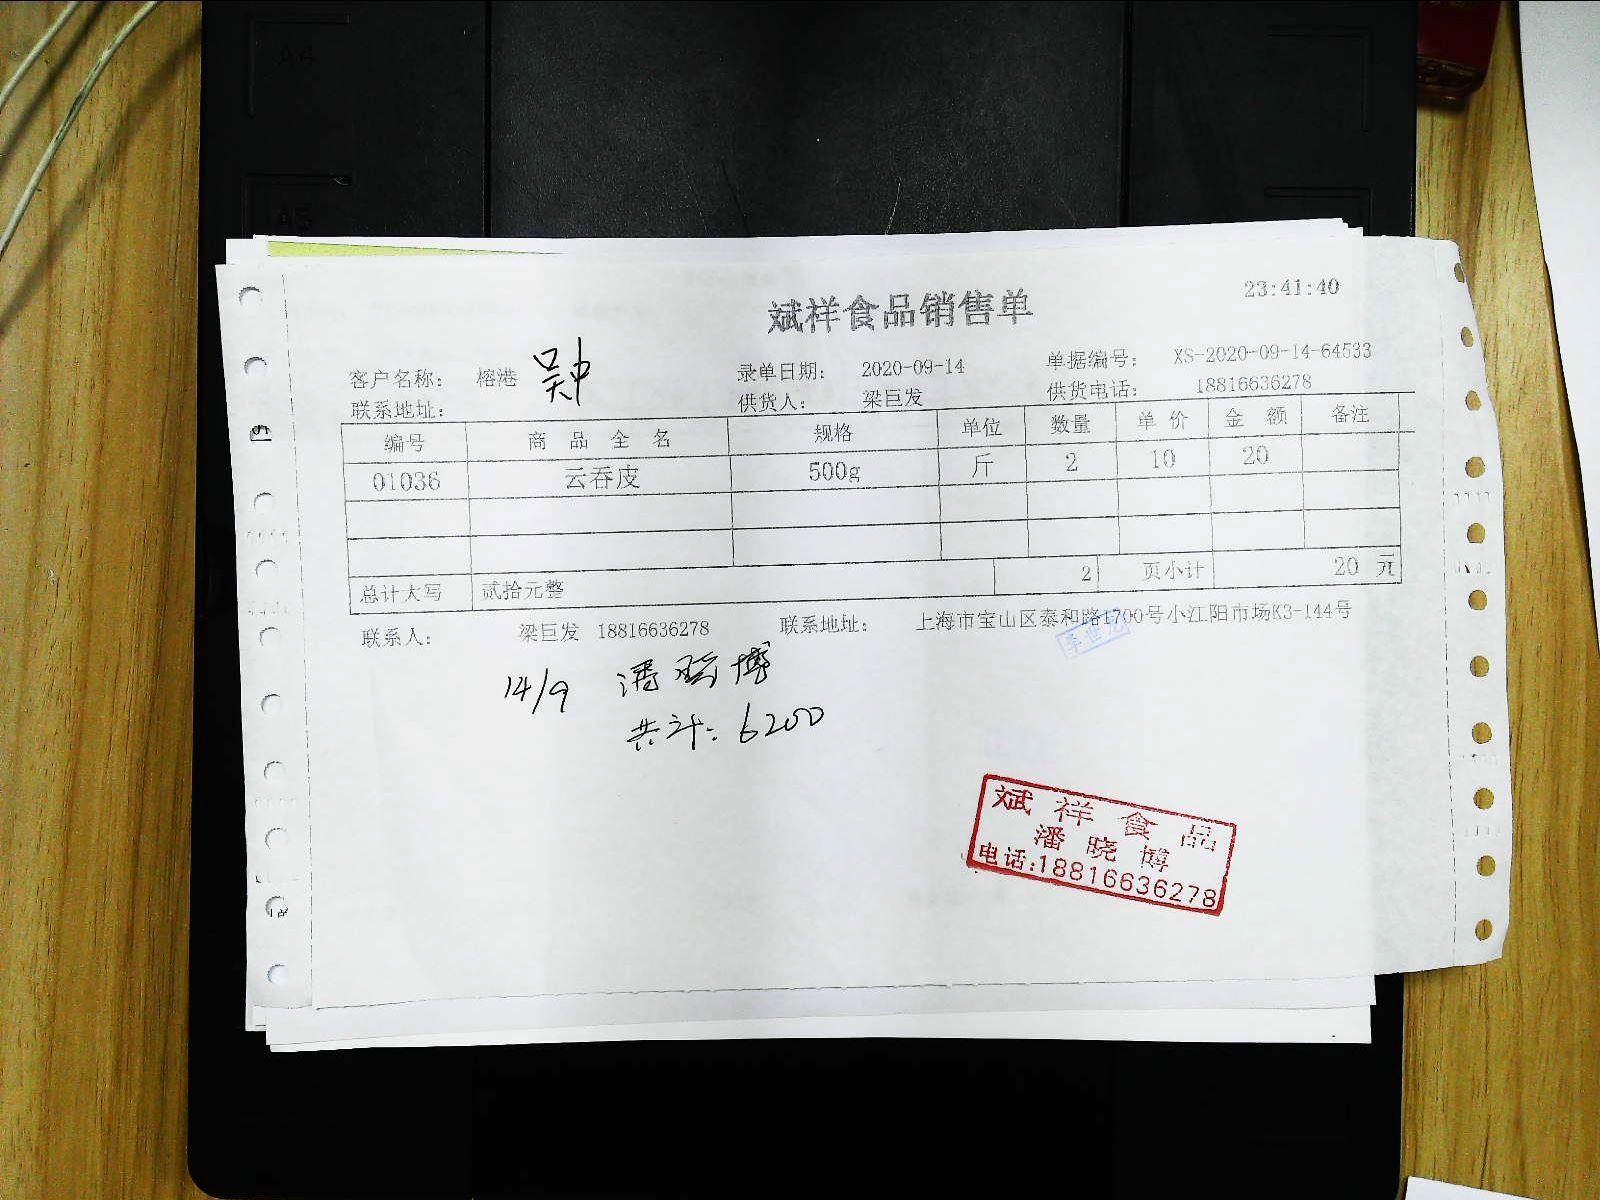 A4
A5
23:41:40
斌祥食品销售单
客户名称: 榕港 吴中 录单日期: 2020-09-14 单据编号: XS-2020-09-14-64533
联系地址: 供货人: 梁巨发 供货电话: 18816636278
编号 商品全名 规格 单位 数量 单价 金额 备注
01036 云吞皮 500g 斤 2 10 20
总计大写 贰拾元整 2 页小计 20 元
联系人: 梁巨发 18816636278 联系地址: 上海市宝山区泰和路1700号小江阳市场K3-144号
14/9 潘晓博
共计: 6200
斌祥食品
潘晓博
电话:18816636278